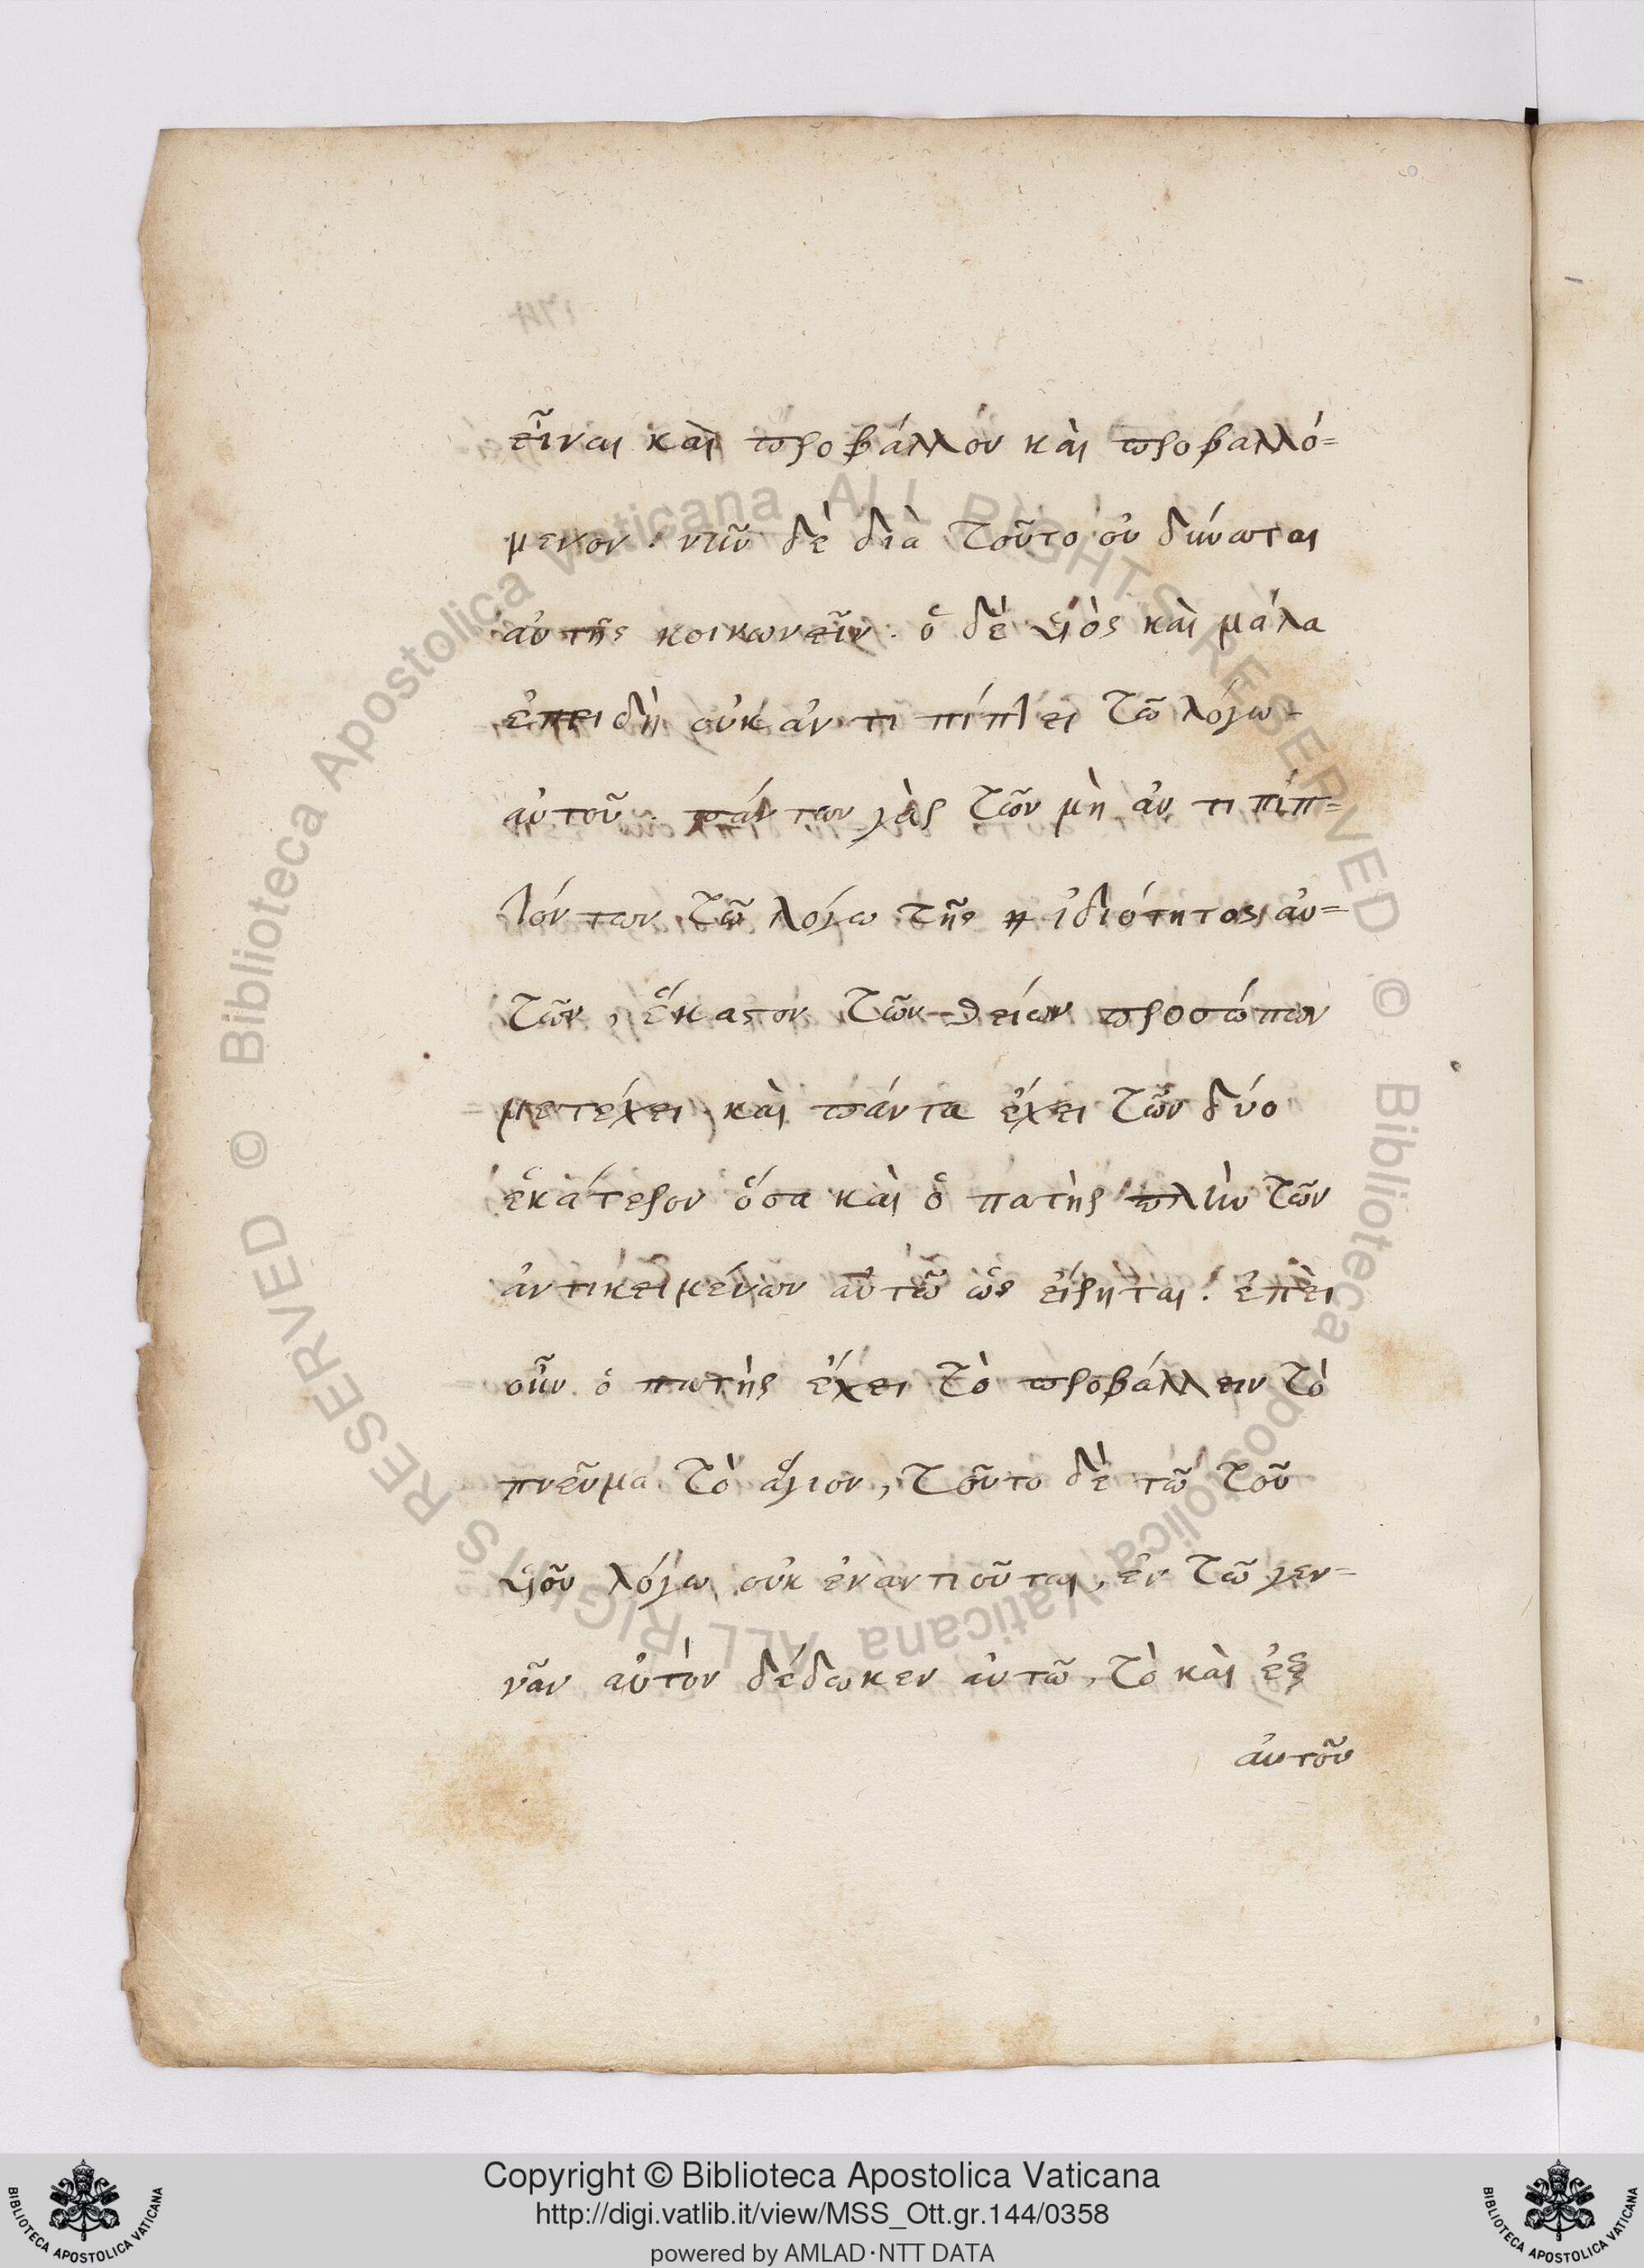 εἶναι καὶ προβάλλον καὶ προβαλλό=
μενον. νῦν δὲ διὰ τοῦτο οὐ δύναται
αὐτῆς κοινωνεῖν. ὁ δὲ ὑιὸς καὶ μάλα
ἐπειδὴ οὐκ ἀντιπίπτει τῶ λόγω
αὐτοῦ. πάντων γὰρ τῶν μὴ ἀντιπιπ=
τόντων τῶ λόγω τῆς ἰδιότητος αὐ=
τῶν, ἕκαστον τῶν θείων προσώπων
μετέχει, καὶ πάντα ἔχει τῶν δύο
ἑκάτερον ὅσα καὶ ὁ πατὴρ πλὴν τῶν
ἀντικειμένων αὐτῶ ὡς εἴρηται. ἐπεὶ
οὖν ὁ πατὴρ ἔχει τὸ προβάλλειν τὸ
πνεῦμα τὸ ἅγιον, τοῦτο δὲ τῶ τοῦ
ὑιοῦ λόγω οὐκ ἐναντιοῦται, ἐν τῶ γεν=
νᾶν αὐτὸν δέδωκεν αὐτῶ, τὸ καὶ ἐξ
αὐτοῦ
Copyright © Biblioteca Apostolica Vaticana
http://digi.vatlib.it/view/MSS_Ott.gr.144/0358
powered by AMLAD·NTT DATA
BIBLIOTECA APOSTOLICA VATICANA
BIBLIOTECA APOSTOLICA VATICANA
© Biblioteca Apostolica Vaticana ALL RIGHTS RESERVED © Biblioteca Apostolica Vaticana ALL RIGHTS RESERVED